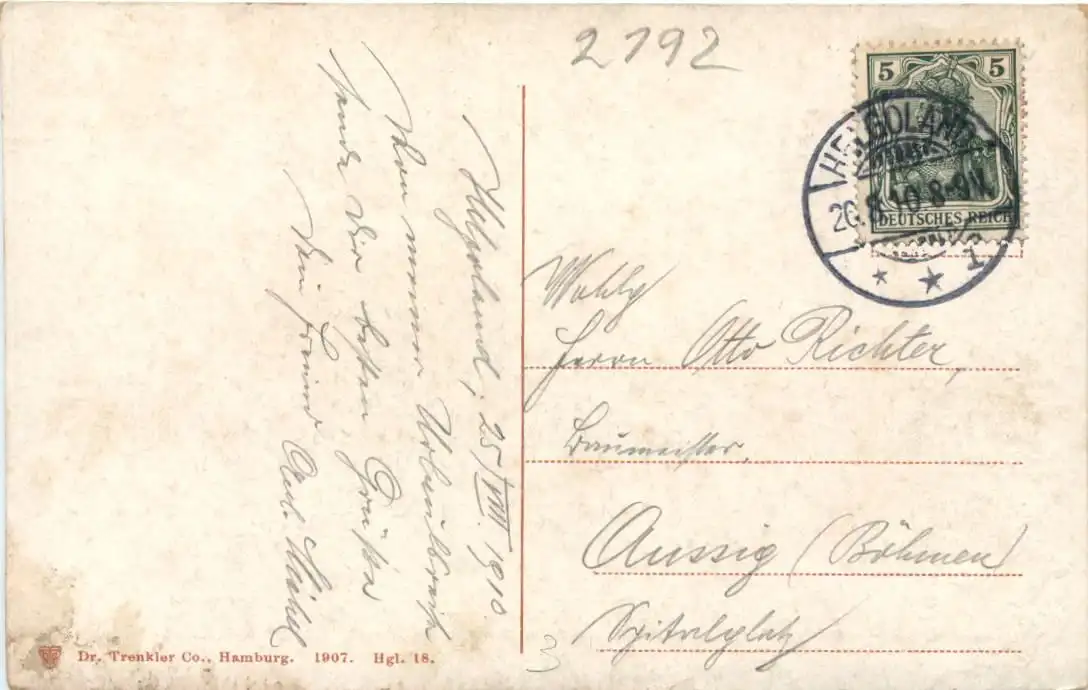 2792
Helgoland, 25/VIII. 1910
Von meiner Urlaubsreise
sende Dir besten Grüße
Dein Freund
5 5
DEUTSCHES REICH
HELGOLAND
26.8.10.8-9N.
* * 1
Wohlg
Herrn Otto Richter,
Baumeister,
Aussig (Böhmen)
Spitalplatz
Dr. Trenkler Co., Hamburg. 1907. Hgl. 18.